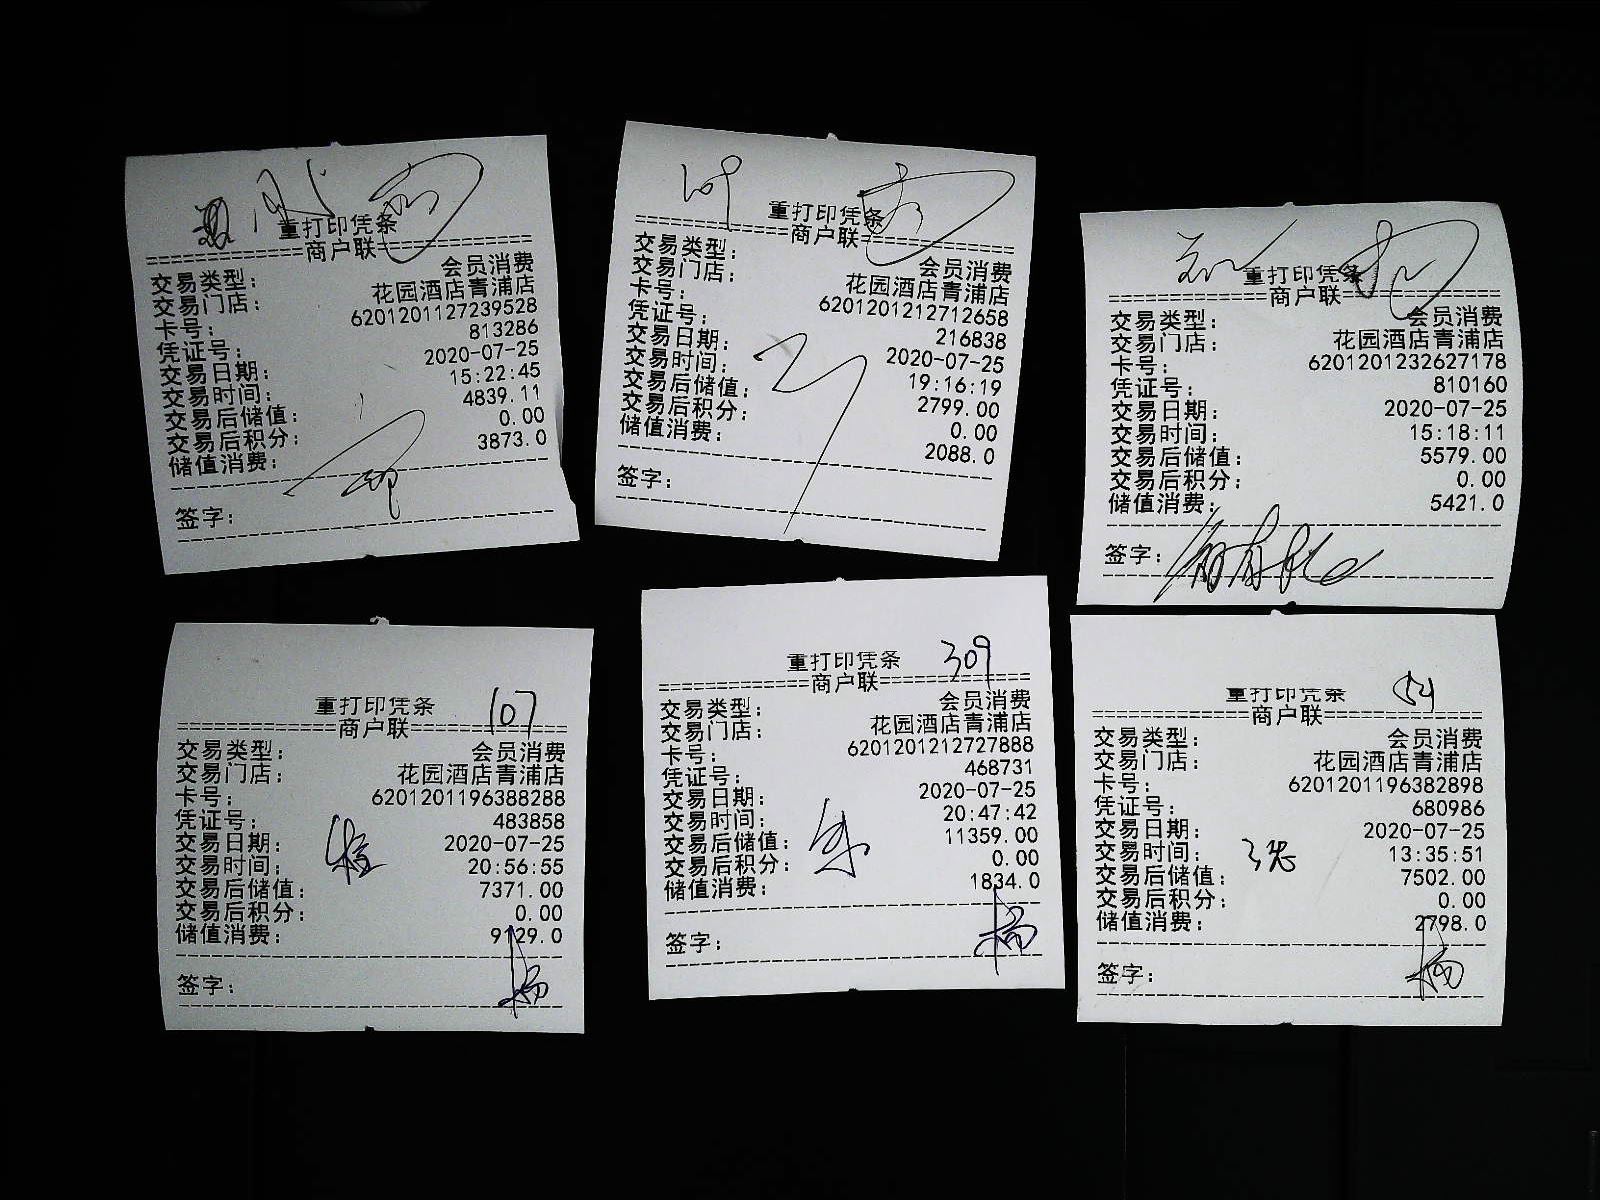 重打印凭条
============商户联============
交易类型: 会员消费
交易门店: 花园酒店青浦店
卡号: 6201201127239528
凭证号: 813286
交易日期: 2020-07-25
交易时间: 15:22:45
交易后储值: 4839.11
交易后积分: 0.00
储值消费: 3873.0
签字:
109
重打印凭条
============商户联============
交易类型: 会员消费
交易门店: 花园酒店青浦店
卡号: 6201201212712658
凭证号: 216838
交易日期: 2020-07-25
交易时间: 19:16:19
交易后储值: 2799.00
交易后积分: 0.00
储值消费: 2088.0
签字:
重打印凭条
============商户联============
交易类型: 会员消费
交易门店: 花园酒店青浦店
卡号: 6201201232627178
凭证号: 810160
交易日期: 2020-07-25
交易时间: 15:18:11
交易后储值: 5579.00
交易后积分: 0.00
储值消费: 5421.0
签字:
重打印凭条 107
============商户联============
交易类型: 会员消费
交易门店: 花园酒店青浦店
卡号: 6201201196388288
凭证号: 483858
交易日期: 2020-07-25
交易时间: 20:56:55
交易后储值: 7371.00
交易后积分: 0.00
储值消费: 9129.0
签字: 杨
重打印凭条 309
============商户联============
交易类型: 会员消费
交易门店: 花园酒店青浦店
卡号: 6201201212727888
凭证号: 468731
交易日期: 2020-07-25
交易时间: 20:47:42
交易后储值: 11359.00
交易后积分: 0.00
储值消费: 1834.0
签字: 杨
重打印凭条
============商户联============
交易类型: 会员消费
交易门店: 花园酒店青浦店
卡号: 6201201196382898
凭证号: 680986
交易日期: 2020-07-25
交易时间: 13:35:51
交易后储值: 7502.00
交易后积分: 0.00
储值消费: 2798.0
签字: 杨